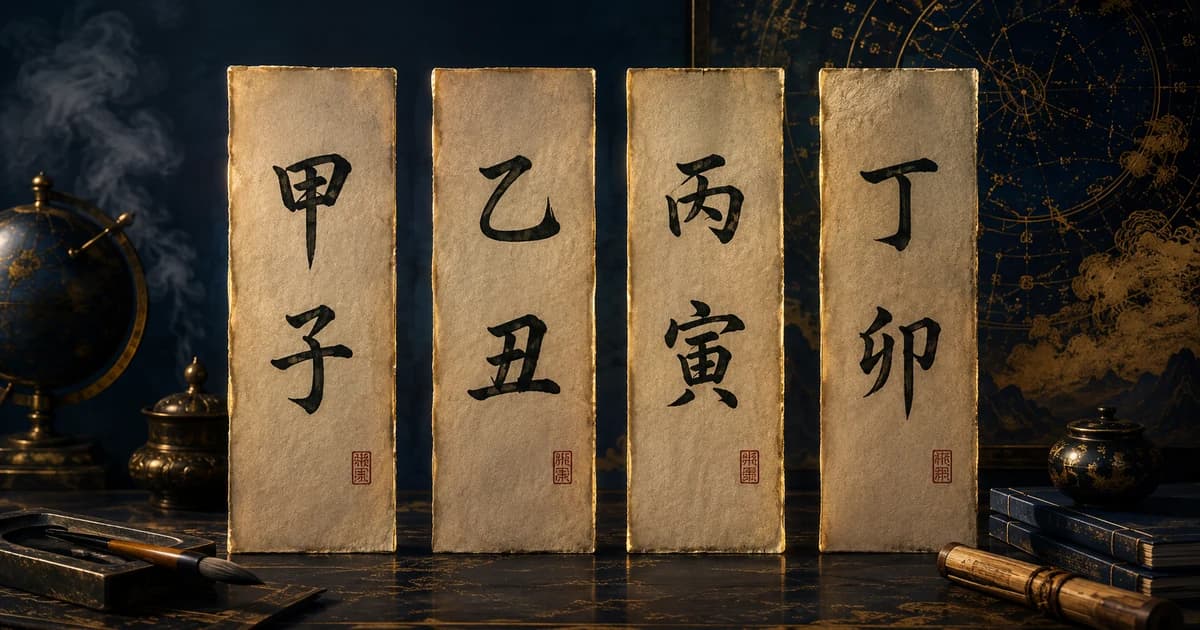 甲子
乙丑
丙寅
丁卯